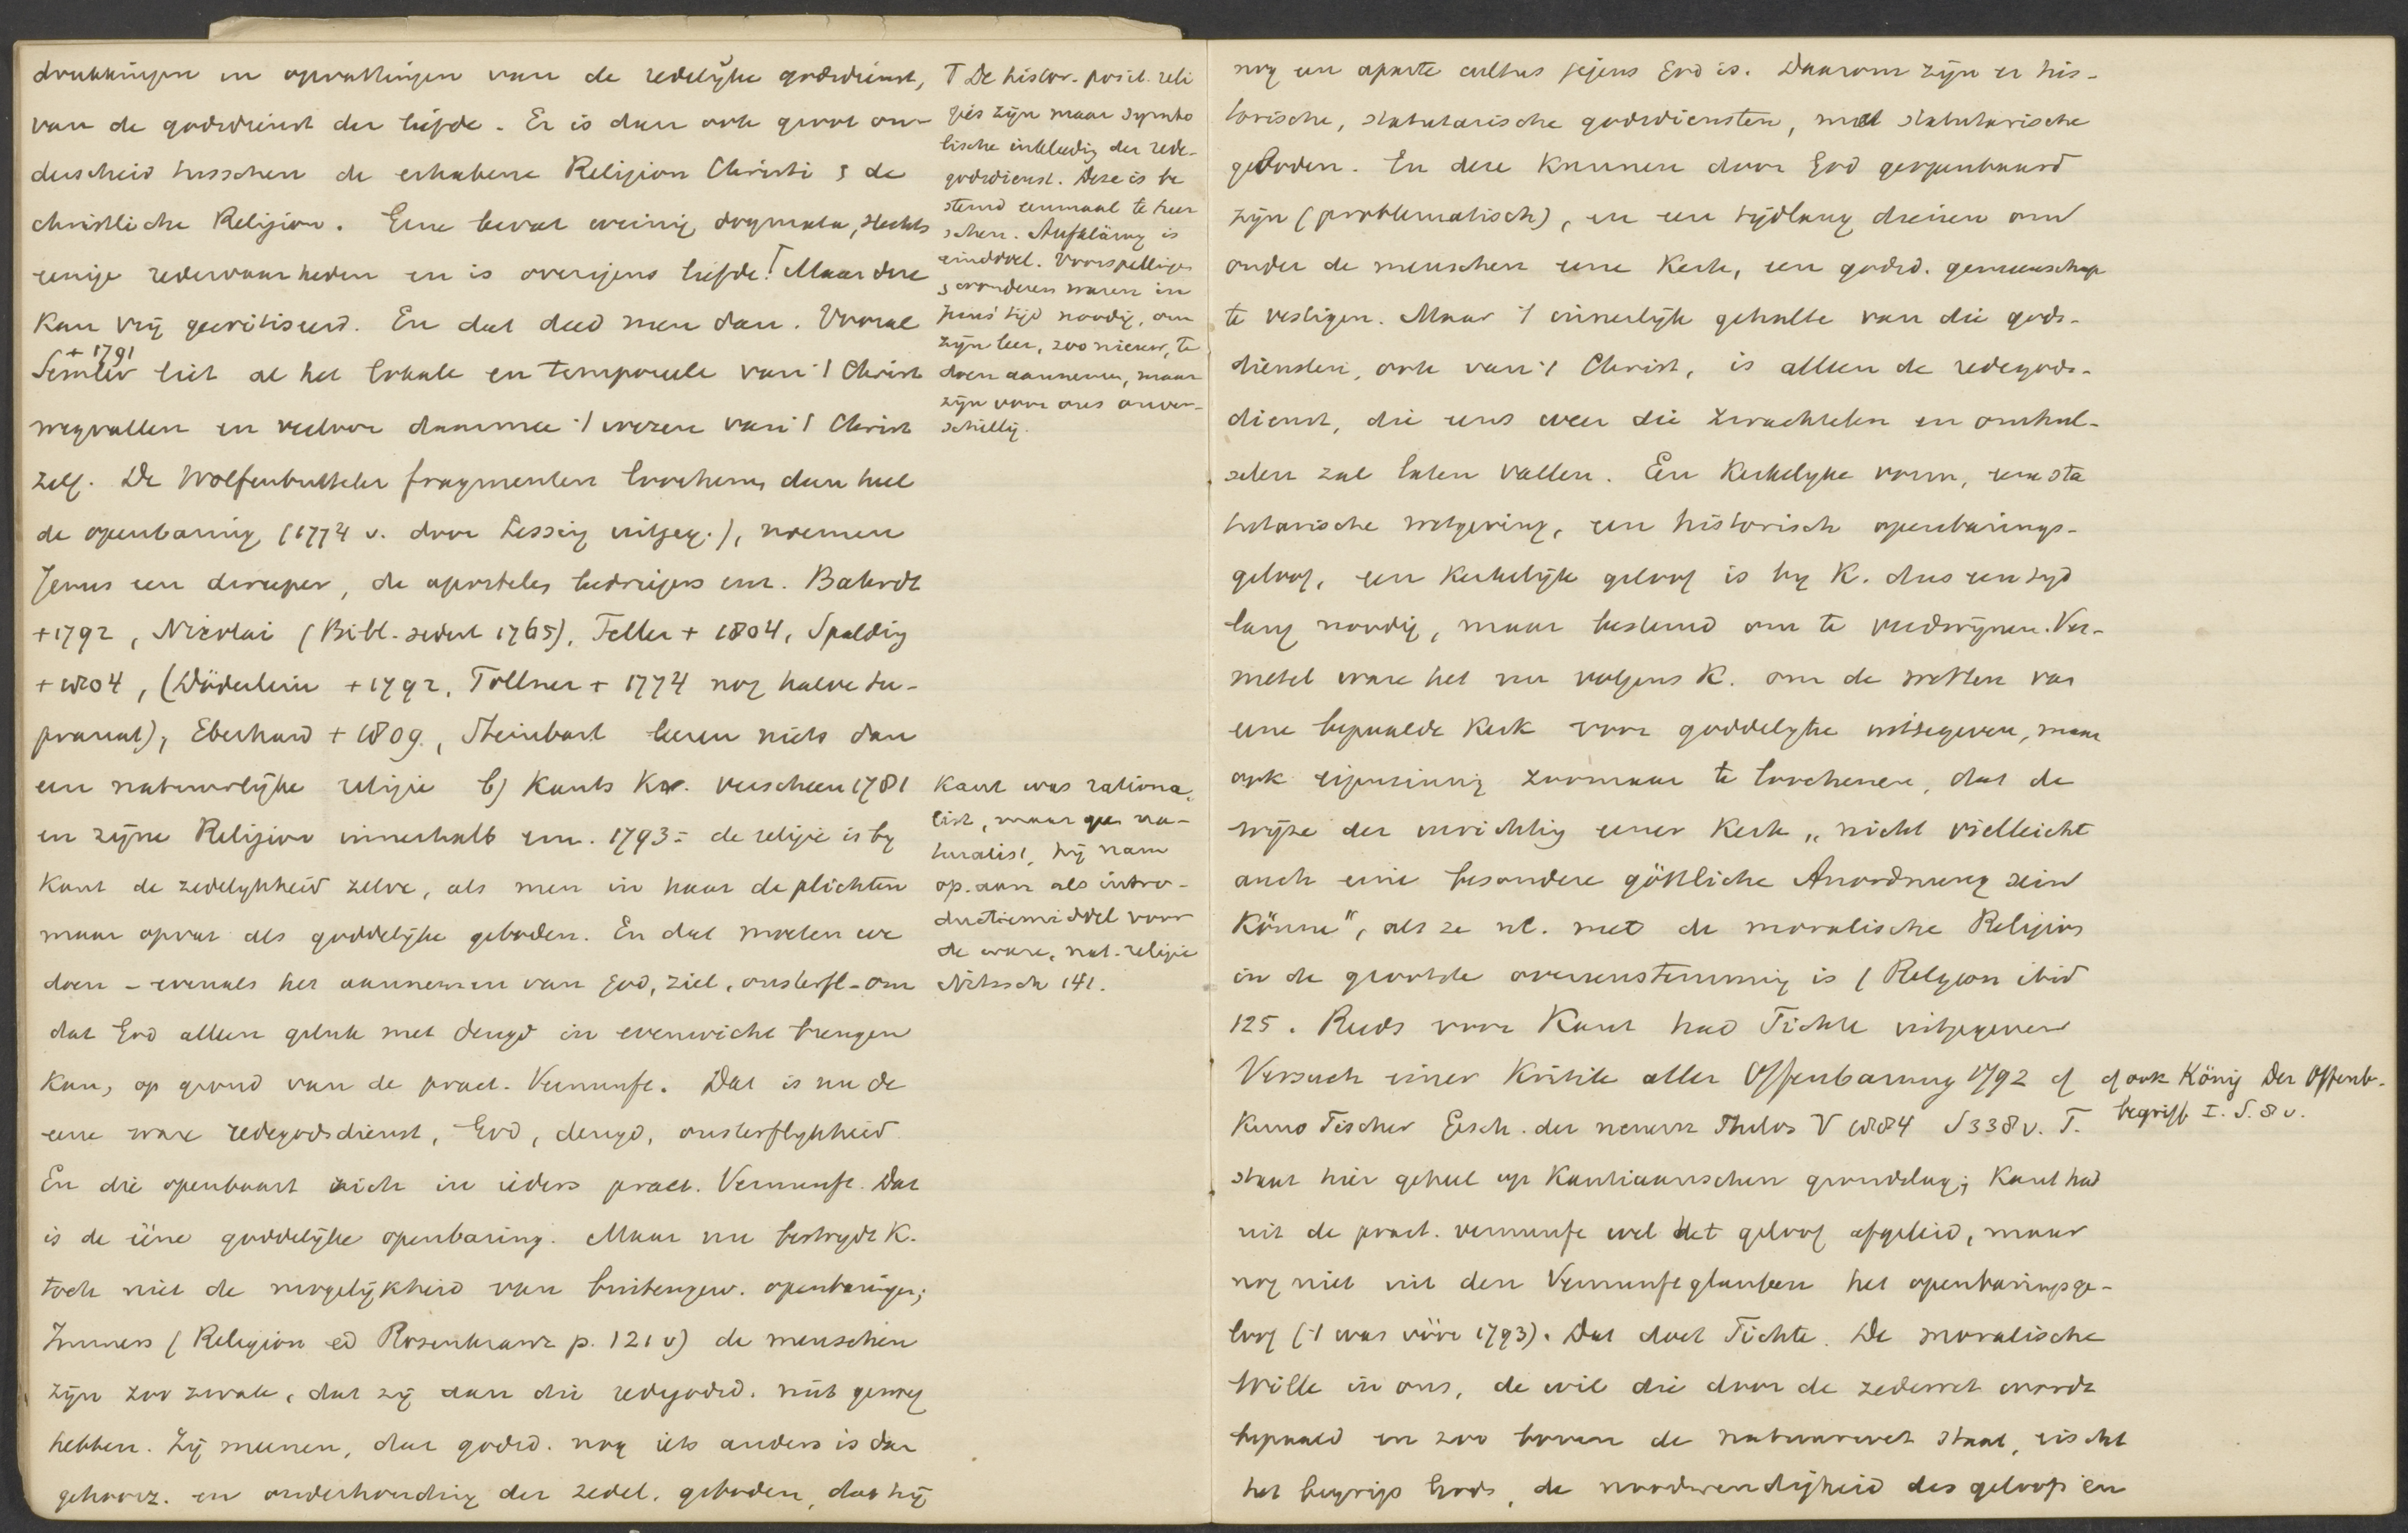 drukkingen en opvattingen van de redelijke godsdienst,
van de godsdienst der liefde. Er is dan ook groot on-
derscheid tusschen de erhabene Religion Christi & de
christliche Religion. Eene bevat weinig dogmata, slechts
eenige redewaarheden en is overigens liefde! Maar deze
kan vrij gecritiseerd. En dat deed men dan. Vooral
+ 1791
Semler liet al het lokale en temporeele van 't Christ
wegvallen en verloor daarmee 't wezen van 't Christ
zelf. De Wolfenbutteler fragmenten loochenen dan heel
de openbaring (1774 v. door Lessing uitgeg.), noemen
Jezus een dweeper, de apostelen bedriegers enz. Bahrdt
+1792, Nicolai (Bibl. sedert 1765), Teller + 1804, Spalding
+1804, (Döderlein +1792, Töllner + 1774 nog halve su-
pranat), Eberhard + 1809, Steinbart leeren niets dan
een natuurlijke religie b) Kants Kr. verscheen 1781
en zijne Religion innerhalb enz. 1793: de religie is by
Kant de zedelykheid zelve, als men in haar de plichten
maar opvat als goddelijke geboden. En dat moeten we
doen – evenals het aannemen van God, ziel, onsterfl – om
dat God alleen geluk met deugd in evenwicht brengen
kan, op grond van de pract. Vernunft. Dat is nu de
eene ware redegodsdienst, God, deugd, onsterflykheid.
En die openbaart zich in ieders pract. Vernunft. Dat
is de ééne goddelijke openbaring. Maar nu bestrydt K.
toch niet de mogelijkheid van buitengew. openbaringen;
Immers (Religion ed Rosenkranz p. 121 v) de menschen
zijn zoo zwak, dat zij aan die redegodsd. niet genoeg
hebben. Zij meenen, dat godsd. nog iets anders is dan
gehoorz. en onderhouding der zedel. geboden, dat hij
T De histor. posit. reli
gies zijn maar symbo
lische inkleeding der rede-
godsdienst. Deze is be
stemd eenmaal te heer
schen. Aufklärung is
einddoel. Voorspellingen
& wonderen waren in
Jezus' tijd noodig, om
zijn leer, zoo nieuw, te
doen aannemen, maar
zijn voor ons onver-
schillig.
Kant was rationa-
list, maar geen na-
turalist, hij nam
op. aan als intro-
ductiemiddel voor
de ware, nat. religie
Nitzsch 141.
nog een aparte cultus jegens God is. Daarom zijn er his-
torische, statutarische godsdiensten, met statutarische
geboden. En deze kunnen door God geopenbaard
zijn (problematisch), en een tijdlang dienen om
onder de menschen eene Kerk, een godsd. gemeenschap
te vestigen. Maar 't innerlijk gehalte van die gods-
diensten, ook van 't Christ, is alleen de redegods-
dienst, die eens weer die zwachtelen en omhul-
selen zal laten vallen. Een Kerkelyke vorm, eene sta
tutarische wetgeving, een historisch openbarings-
geloof, een Kerkelijk geloof is by K. dus een tyd
lang noodig, maar bestemd om te verdwijnen. Ver-
metel ware het nu volgens K. om de wetten van
eene bepaalde Kerk voor goddelyke uittegeven, maar
ook eigenzinnig zoomaar te loochenen, dat de
wijze der inrichting eener Kerk „nicht vielleicht
auch eine besondere göttliche Anordnung sein
könne", als ze nl. met de moralische Religion
in de grootste overeenstemming is (Religion ibid
125. Reeds voor Kant had Fichte uitgegeven
Versuch einer Kritik aller Offenbarung 1792 cf
Kuno Fischer Gesch. der neuern Philos V 1884 S 338 v. F.
staat hier geheel op Kantiaanschen grondslag; Kant had
uit de pract. vernunft wel het geloof afgeleid, maar
nog niet uit den Vernunftglauben het openbaringsge-
loof ('t was vóór 1793). Dat doet Fichte. De moralische
Wille in ons, de wil die door de zedewet wordt
bepaald en zoo boven de natuurwet staat, eischt
het begrip Gods, de noodwendigheid des geloofs in
cf ook König Der Offenb.
begriff I. S. 8 v.